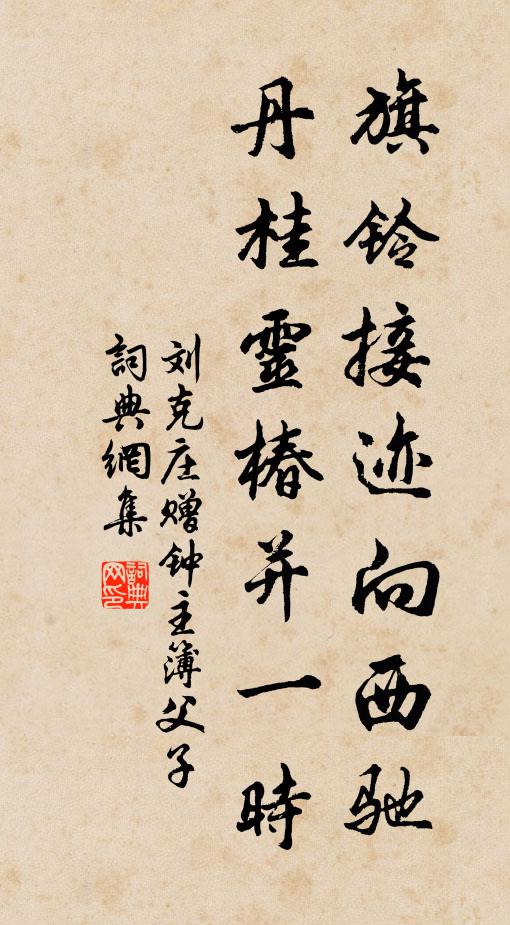 旗铃接迹向西驰
丹桂靈椿并一時
刘克庄赠钟主簿父子
詞典網集
詞典
网印